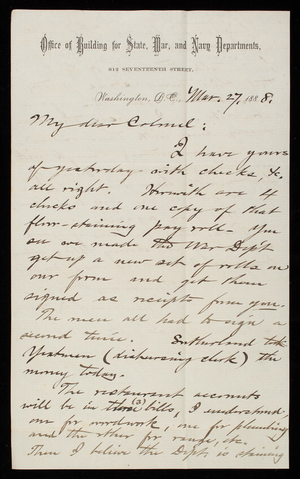 Office of Building for State, War, and Navy Departments,
612 SEVENTEENTH STREET,
Washington, D.C., Mar. 27, 1888.
My dear Colonel:
I have yours
of yesterday - with checks, &c.
all right. Herewith are 4
checks and one copy of that
floor-staining pay roll - You
see we made the War Dept.
get up a new set of rolls on
our form and get them
signed as receipts from you.
The men all had to sign a
second time. Sutherland took
Yeatmen (disbursing clerk) the
money today.
The restaurant accounts
will be in three (3) bills, I understand,
one for woodwork, one for plumbing
and the other for range, etc.
Then I believe the Dept. is staining